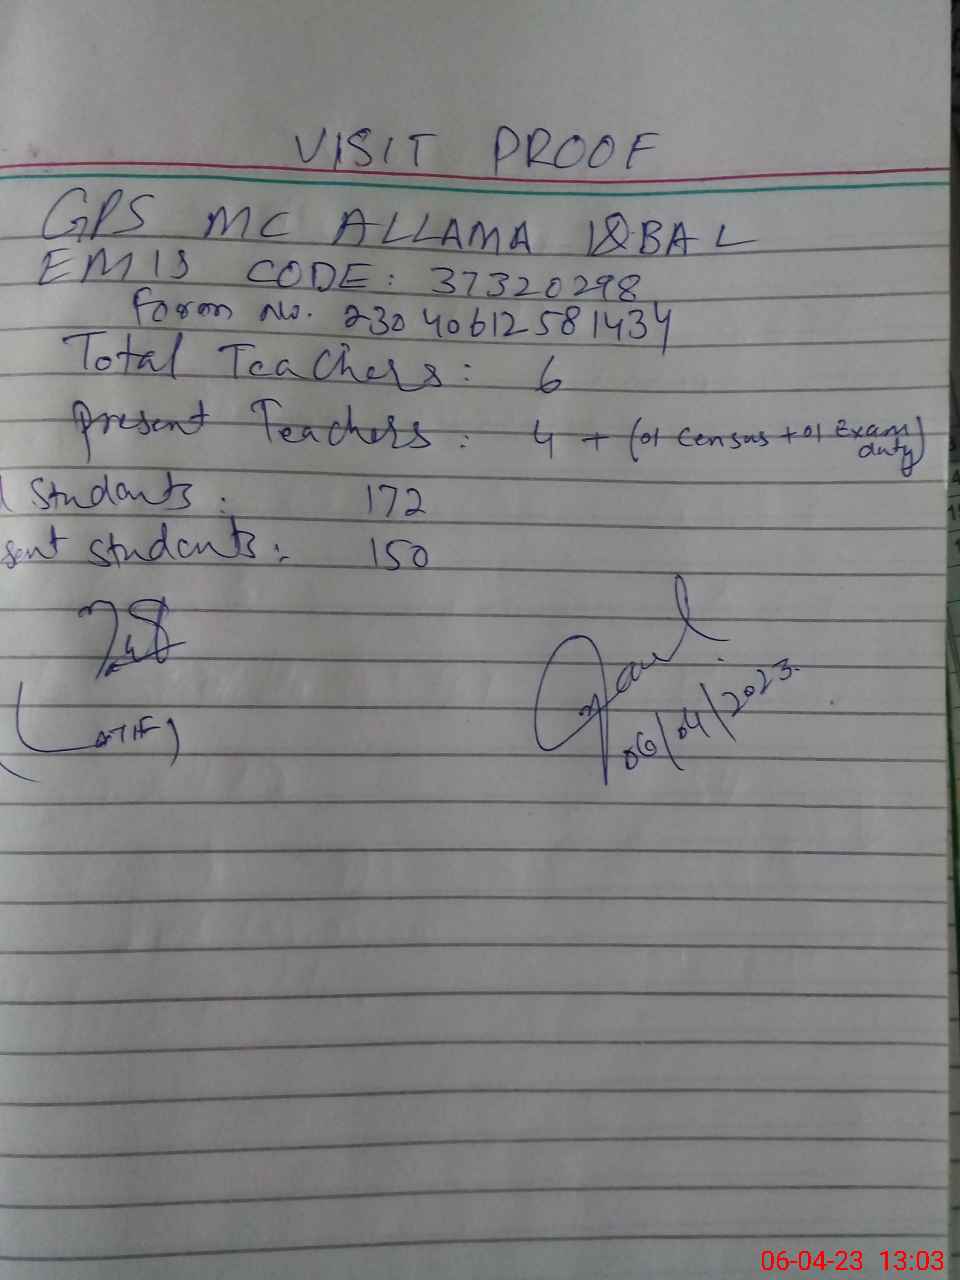 VISIT PROOF
GPS MC ALLAMA IQBAL
EMIS CODE: 37320298
Form No. 23040612581434
Total Teachers: 6
Present Teachers: 4 + (01 Census + 01 Exam duty)
l Students: 172
sent students: 150
(LATIF)
06/04/2023.
06-04-23 13:03